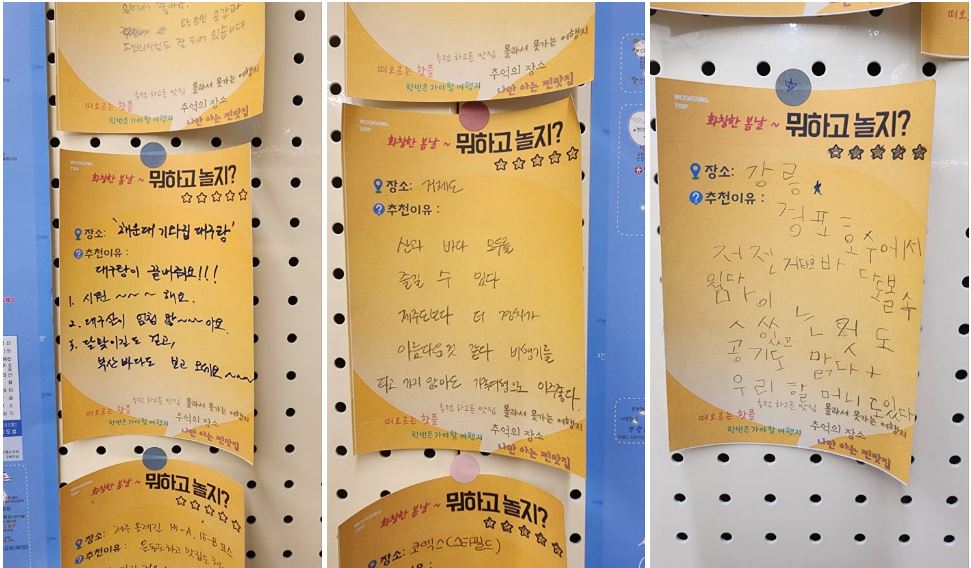 탁트인 공간과
편의시설도 잘 되어 있습니다
추천 하고픈 맛집 몰라서 못가는 여행지
떠오르는 핫플 추억의 장소
한번은 가야할 여행지 나만 아는 찐맛집
WOORUNG
TRIP
화창한 봄날 ~ 뭐하고 놀지?
장소: '해운대 기와집 대구탕'
추천이유 :
대구탕이 끝내줘요!!!
1. 시원 ~~~ 해요.
2. 대구살이 엄청 많~~~아요.
3. 달맞이길도 걷고,
부산바다도 보고 오세요~~~
추천 하고픈 맛집 몰라서 못가는 여행지
떠오르는 핫플 추억의 장소
한번은 가야할 여행지 나만 아는 찐맛집
화창한 봄날 ~ 뭐하고 놀지?
장소: 제주 올레길 15-A, 15-B 코스
추천이유 : 운동도하고 맛집도
추천 하고픈 맛집 몰라서 못가는 여행지
떠오르는 핫플 추억의 장소
한번은 가야할 여행지 나만 아는 찐맛집
화창한 봄날 ~ 뭐하고 놀지?
장소: 거제도
추천이유 :
산과 바다 모두를
즐길 수 있다
제주도보다 더 경치가
아름다운것 같다. 비행기를
타고 가지 않아도 가족여행으로 아주좋다.
추천 하고픈 맛집 몰라서 못가는 여행지
떠오르는 핫플 추억의 장소
한번은 가야할 여행지 나만 아는 찐맛집
화창한 봄날 ~ 뭐하고 놀지?
장소: 코엑스(스타필드)
추천이유 :
떠오르는 핫플 추억의 장소
한번은 가야할 여행지 나만 아는 찐맛집
TRIP
화창한 봄날 ~ 뭐하고 놀지?
장소: 강릉
추천이유 :
경포호수에서
자전거타고 바다도 볼 수
있다
공기도 맑다+
우리 할머니도있다
추천 하고픈 맛집 몰라서 못가는 여행지
떠오르는 핫플 추억의 장소
한번은 가야할 여행지 나만 아는 찐맛집